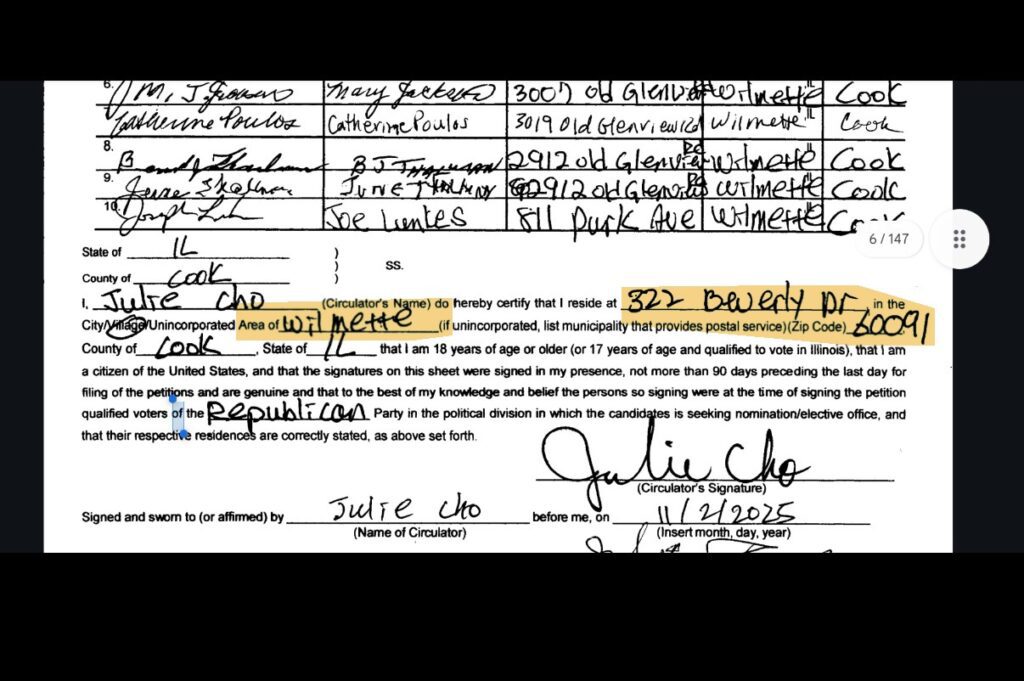 6. M. J. Jackson Mary Jackson 3007 Old Glenview Wilmette IL Cook
Catherine Poulos Catherine Poulos 3019 Old Glenview Rd Wilmette IL Cook
8. B J 2912 Old Glenview Rd Wilmette IL Cook
9. June June 2912 Old Glenview Rd Wilmette IL Cook
10. Joseph Joe Lunkes 811 Park Ave Wilmette IL Cook
6 / 147
State of IL )
)
County of Cook ) SS.
I, Julie Cho (Circulator's Name) do hereby certify that I reside at 322 Beverly Dr in the
City/Village/Unincorporated Area of Wilmette (if unincorporated, list municipality that provides postal service)(Zip Code) 60091
County of Cook, State of IL that I am 18 years of age or older (or 17 years of age and qualified to vote in Illinois), that I am
a citizen of the United States, and that the signatures on this sheet were signed in my presence, not more than 90 days preceding the last day for
filing of the petitions and are genuine and that to the best of my knowledge and belief the persons so signing were at the time of signing the petition
qualified voters of the Republican Party in the political division in which the candidates is seeking nomination/elective office, and
that their respective residences are correctly stated, as above set forth.
Julie Cho
(Circulator's Signature)
Signed and sworn to (or affirmed) by Julie Cho before me, on 11/2/2025
(Name of Circulator) (Insert month, day, year)